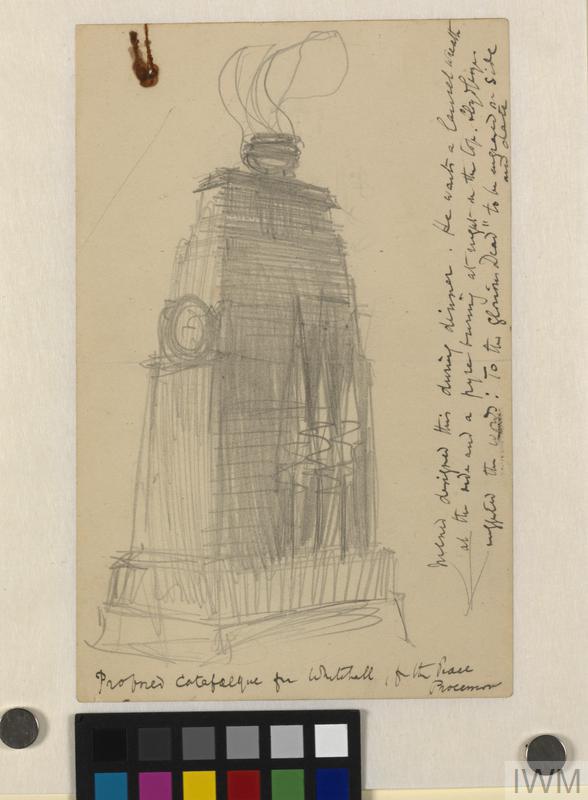 McNed designed this during dinner. He wants a laurel wreath
at the side and a pyre burning at night on the top.
suggested the words: "To the glorious Dead" to be engraved on side
and date
Proposed catafalque for Whitehall, for the Peace
Procession
IWM